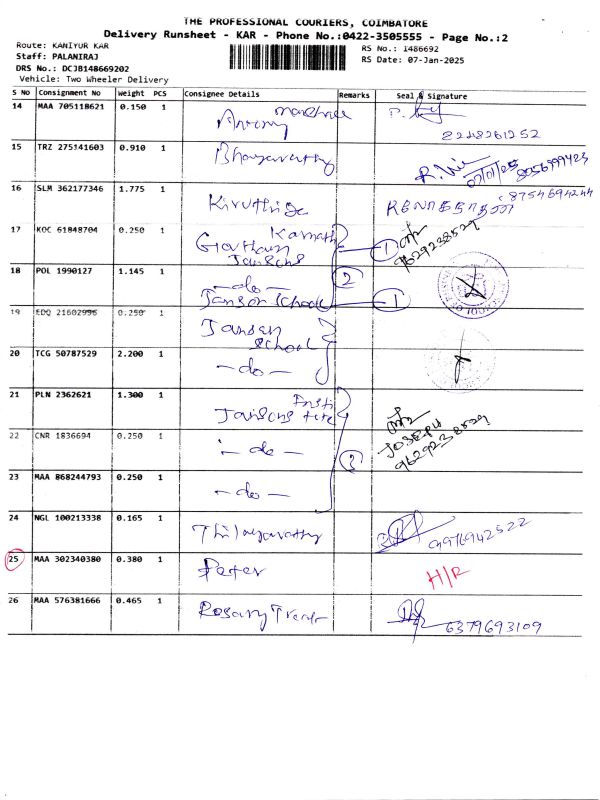 THE PROFESSIONAL COURIERS, COIMBATORE
Delivery Runsheet - KAR - Phone No.:0422-3505555 - Page No.:2
Route: KANIYUR KAR
RS No.: 1486692
Staff: PALANIRAJ
RS Date: 07-Jan-2025
DRS No.: DCJB148669202
Vehicle: Two Wheeler Delivery
S No Consignment No Weight PCS Consignee Details Remarks Seal & Signature
14 MAA 705118621 0.150 1
15 TRZ 275141603 0.910 1
16 SLM 362177346 1.775 1 Kiruthiga 8754694244
17 KOC 61848704 0.250 1 Kamath
Jansons 1 9629238529
18 POL 1990127 1.145 1 -do- 2
Janson School 1
19 EDQ 21602996 0.250 1 Jansen
School
20 TCG 50787529 2.200 1 -do-
21 PLN 2362621 1.300 1 Insti
Jansons tute
22 CNR 1836694 0.250 1 -do- 3 JOSEPH
9629238529
23 MAA 868244793 0.250 1 -do-
24 NGL 100213338 0.165 1 Thilagavathy 9976942522
25 MAA 302340380 0.380 1 Peter H/R
26 MAA 576381666 0.465 1 Rosary 6379693109